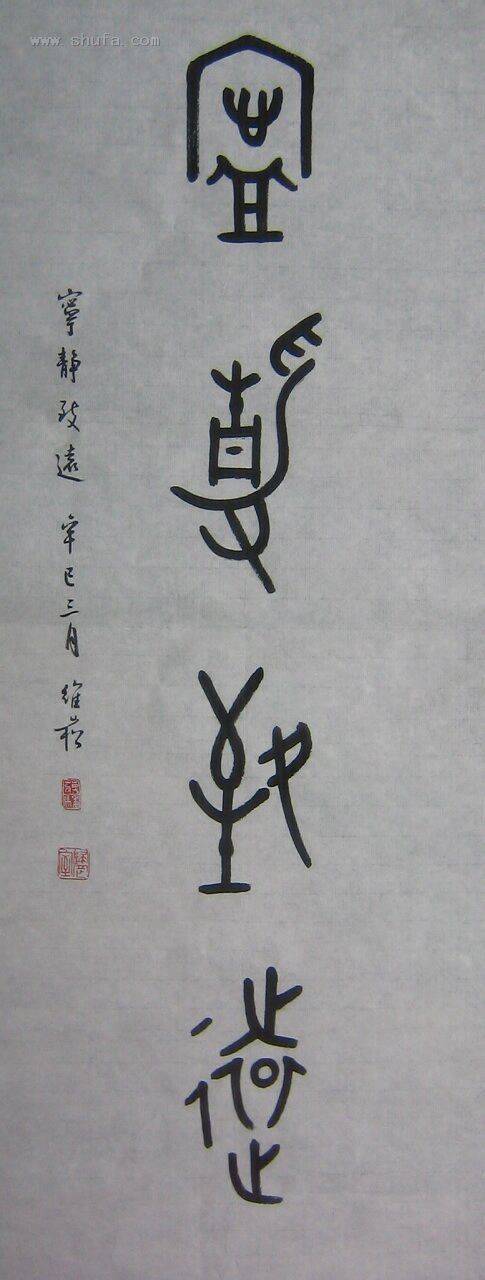 www.shufa.com
寧靜致遠
寧靜致遠 辛巳三月 維崧